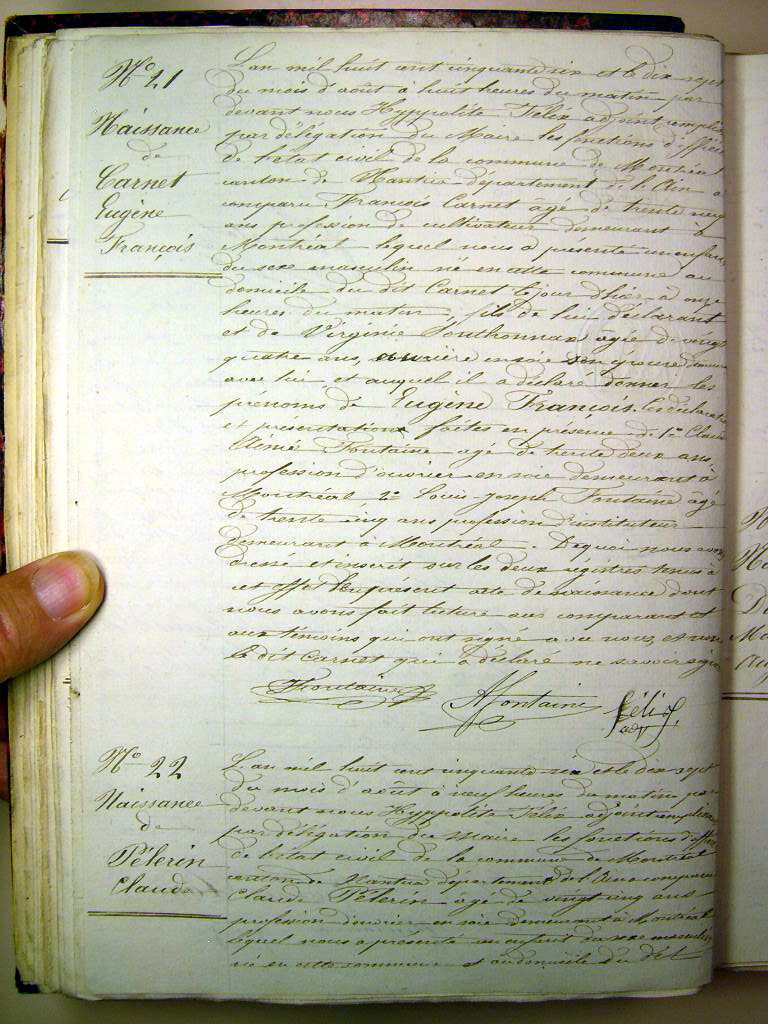 N° 21
Naissance
de
Carnet
Eugène
François
L'an mil huit cent cinquante six et le dix sept
du mois d'août à huit heures du matin par
devant nous Hyppolite Félix adjoint remplis
par délégation du Maire les fonctions d'offici
de l'état civil de la commune de Montréal
canton de Nantua département de l'Ain a
comparu François Carnet âgé de trente neuf
ans profession de cultivateur demeurant à
Montréal lequel nous a présenté un enfant
du sexe masculin né en cette commune au
domicile du dit Carnet le jour d'hier à onze
heures du matin, fils de lui déclarant
et de Virginie âgée de vingt
quatre ans, ouvrière en soie son épouse demeur
avec lui et auquel il a déclaré donner les
prénoms de Eugène François. Les déclaration
et présentation faites en présence de 1° Claude
Aimé Fontaine âgé de trente deux ans,
profession d'ouvrier en soie demeurant à
Montréal, 2° Louis Joseph Fontaine âgé
de trente cinq ans profession d'instituteur
demeurant à Montréal. De quoi nous avons
dressé et inscrit sur les deux régistres tenus à
cet effet le présent acte de naissance dont
nous avons fait lecture aux comparant et
aux témoins qui ont signé avec nous, et non
le dit Carnet qui a déclaré ne savoir signer
Fontaine Afontaine Félix
adj
N° 22
Naissance
de
Pélerin
Claude
L'an mil huit cent cinquante six et le dix sept
du mois d'août à neuf heures du matin par
devant nous Hyppolite Félix adjoint remplissan
par délégation du Maire les fonctions d'offici
de l'état civil de la commune de Montréal
canton de Nantua département de l'Ain a comparu
Claude Pélerin âgé de vingt cinq ans
profession d'ouvrier en soie demeurant à Montréal
lequel nous a présenté un enfant du sexe masculin
né en cette commune et au domicile du dit